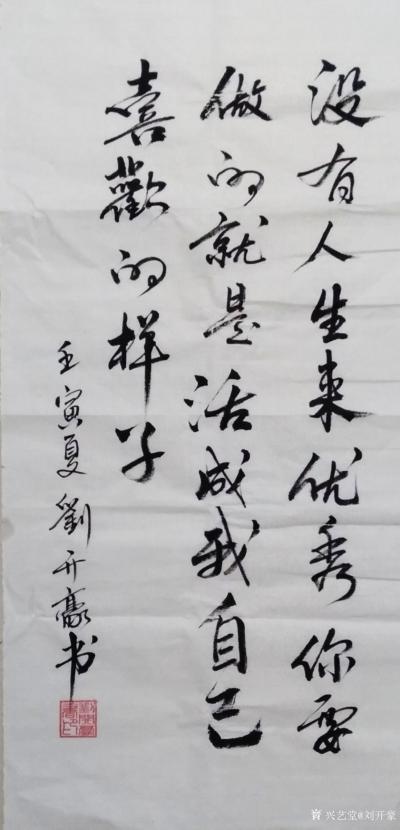 没有人生来优秀你要
做的就是活成我自己
喜歡的样子
壬寅夏劉开豪书
兴艺堂@刘开豪